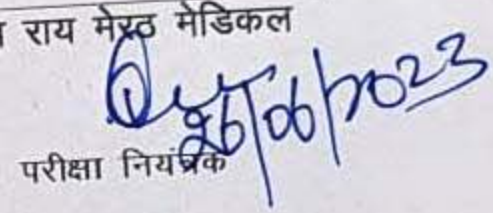 राय मेरठ मेडिकल
26/06/2023
परीक्षा नियंत्रक